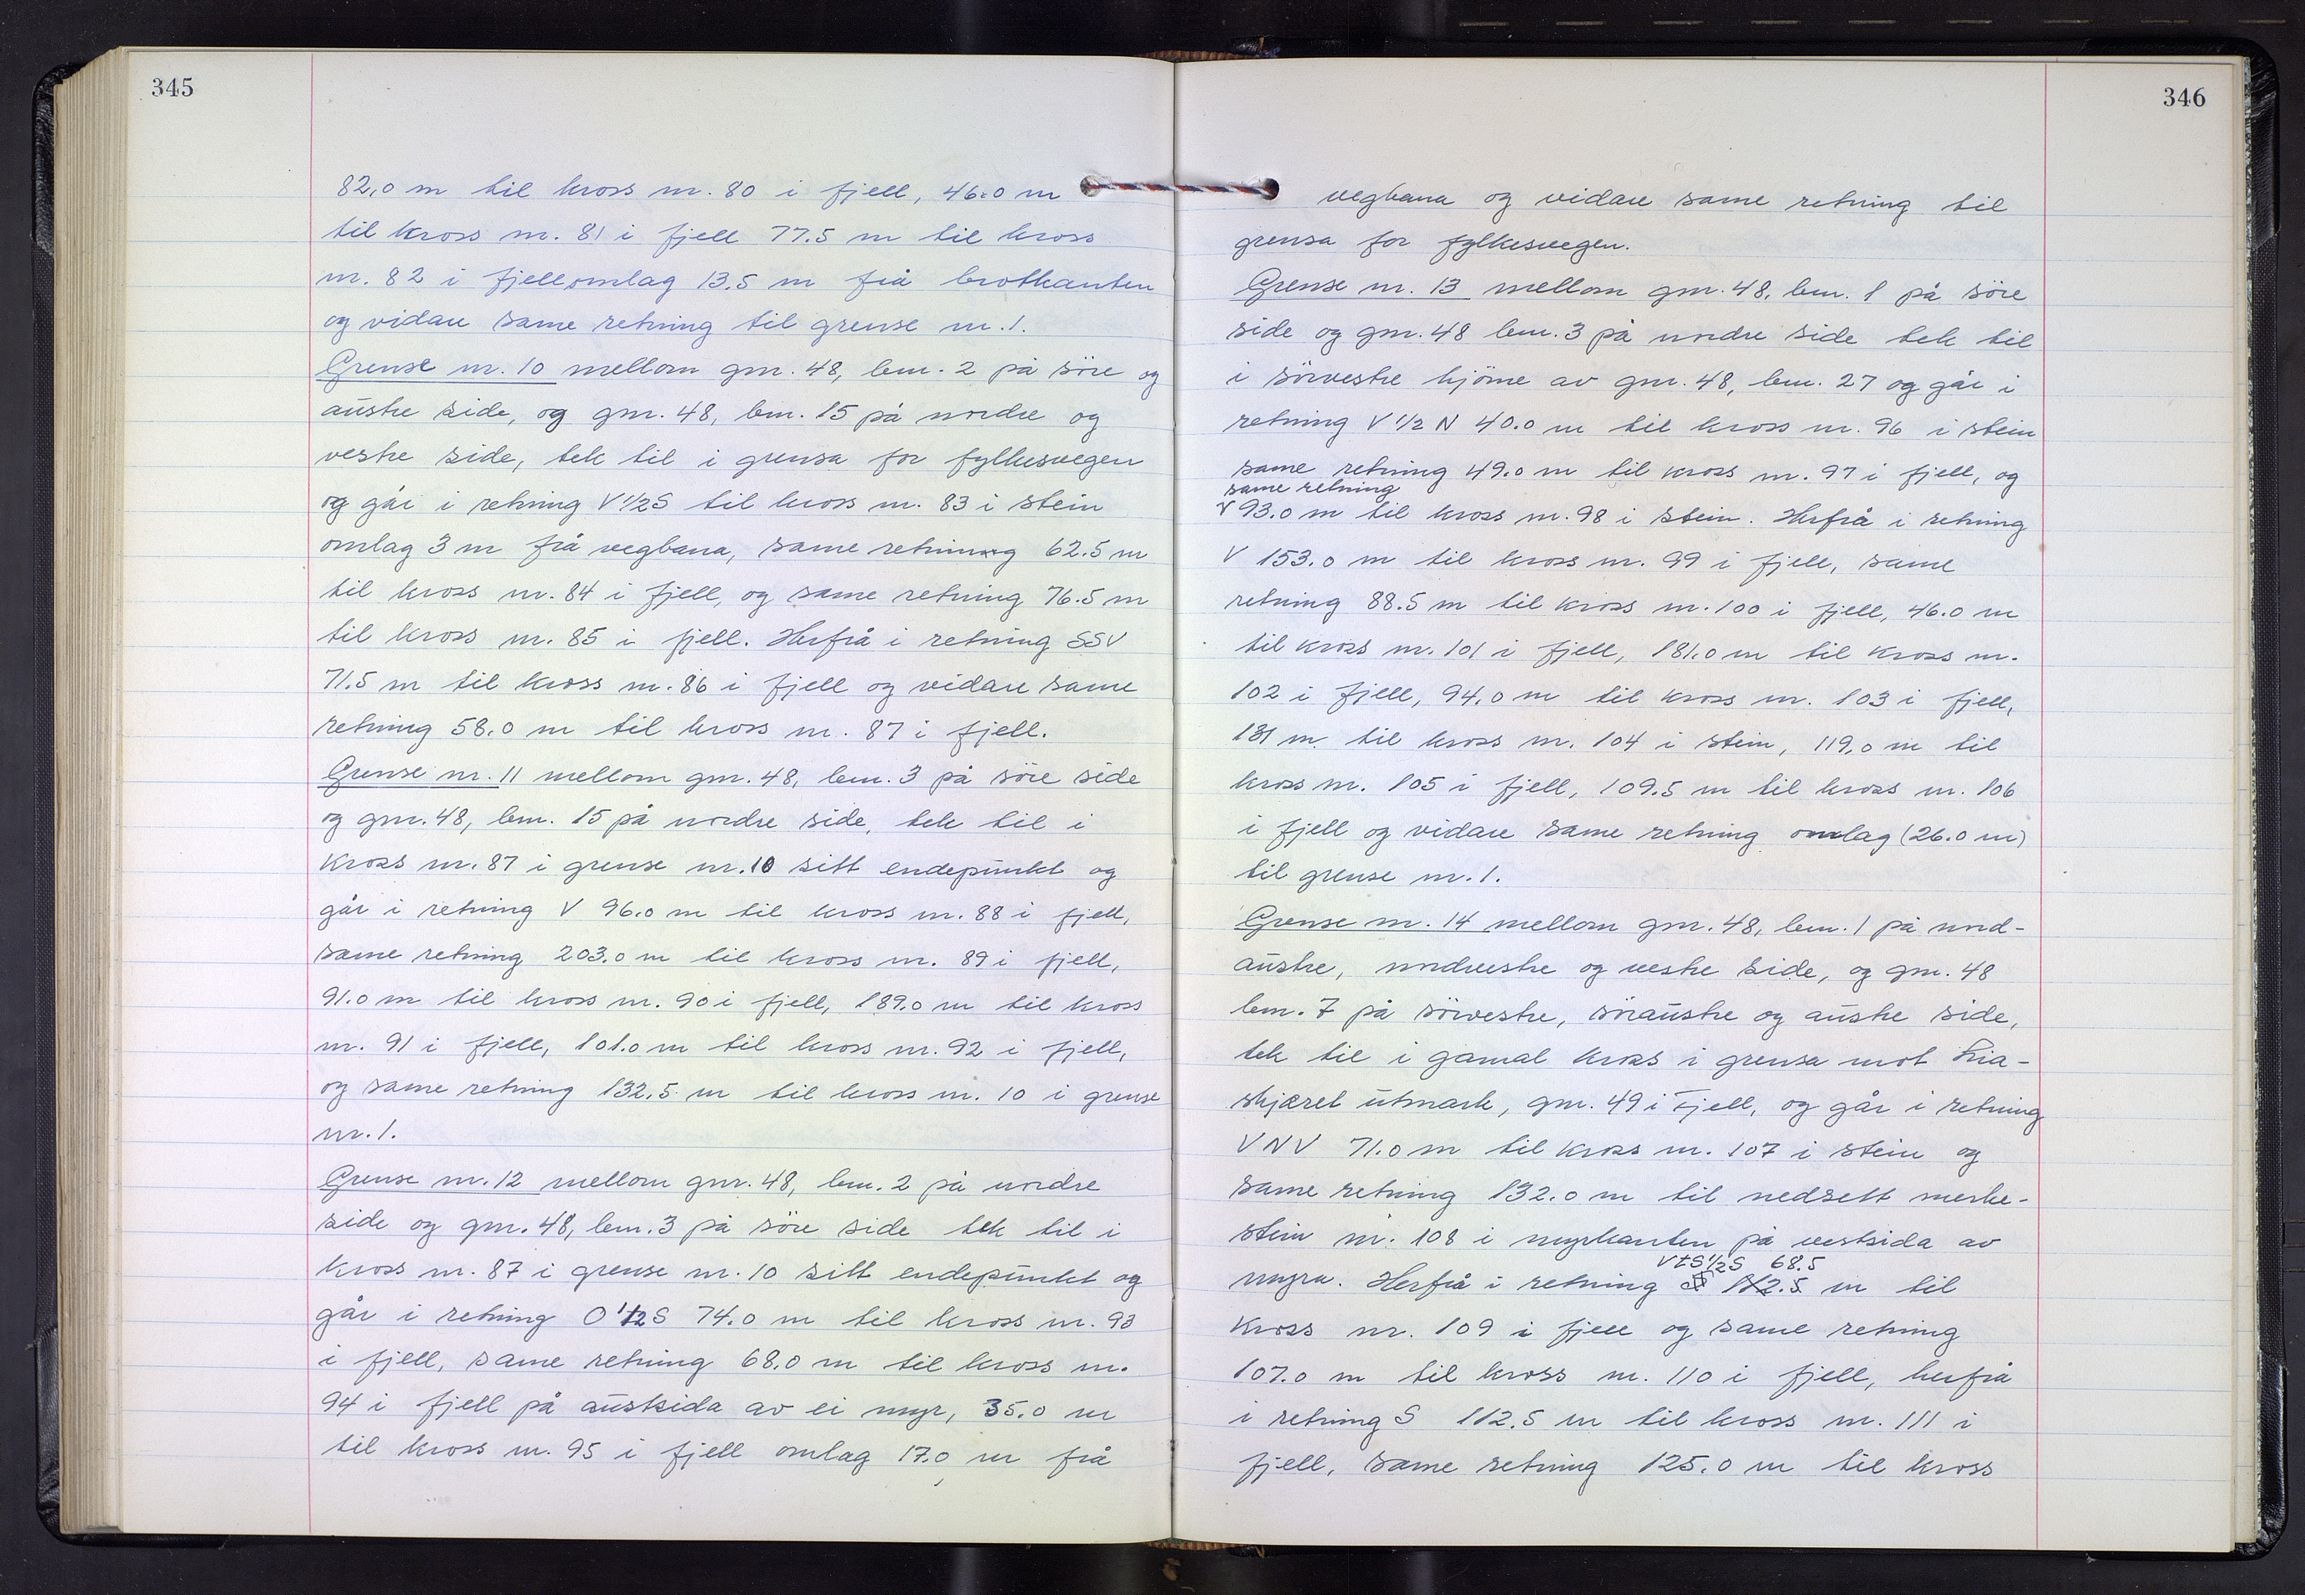 345
82,0 m til kross nr. 80 i fjell, 46.0 m
til kross nr. 81 i fjell 77.5 m til kross
nr. 82 i fjell omlag 13.5 m frå brotkanten
og vidare same retning til grense nr. 1.
Grense nr. 10 mellom gnr. 48, bnr. 2 på söre og
austre side, og gnr. 48, bnr. 15 på nordre og
vestre side, tek til i grensa for fylkesvegen
og går i retning V 1/2 S til kross nr. 83 i stein
omlag 3 m frå vegbana, same retning 62.5 m
til kross nr. 84 i fjell, og same retning 76.5 m
til kross nr. 85 i fjell. Herfrå i retning SSV
71.5 m til kross nr. 86 i fjell og vidare same
retning 58.0 m til kross nr. 87 i fjell.
Grense nr. 11 mellom gnr. 48, bnr. 3 på söre side
og gnr. 48, bnr. 15 på nordre side, tek til i
kross nr. 87 i grense nr. 10 sitt endepunkt og
går i retning V 96.0 m til kross nr. 88 i fjell,
same retning 203.0 m til kross nr. 89 i fjell,
91.0 m til kross nr. 90 i fjell, 189.0 m til kross
nr. 91 i fjell, 101.0 m til kross nr. 92 i fjell,
og same retning 132.5 m til kross nr. 10 i grense
nr. 1.
Grense nr. 12 mellom gnr. 48, bnr. 2 på nordre
side og gnr. 48, bnr. 3 på söre side tek til i
kross nr. 87 i grense nr. 10 sitt endepunkt og
går i retning O 1/2 S 74.0 m til kross nr. 93
i fjell, same retning 68.0 m til kross nr.
94 i fjell på austsida av ei myr, 35.0 m
til kross nr. 95 i fjell omlag 17.0 m frå
346
vegbana og vidare same retning til
grensa for fylkesvegen.
Grense nr. 13 mellom gnr. 48, bnr. 1 på söre
side og gnr. 48 bnr. 3 på nordre side tek til
i sörvestre hjörne av gnr. 48, bnr. 27 og går i
retning V 1/2 N 40.0 m til kross nr. 96 i stein
same retning 49.0 m til kross nr. 97 i fjell, og
same retning
V 93.0 m til kross nr. 98 i stein. Herfrå i retning
V 153.0 m til kross nr. 99 i fjell, same
retning 88.5 m til kross nr. 100 i fjell, 46.0 m
til kross nr. 101 i fjell, 181.0 m til kross nr.
102 i fjell, 94.0 m til kross nr. 103 i fjell,
131 m til kross nr. 104 i stein, 119,0 m til
kross nr. 105 i fjell, 109.5 m til kross nr. 106
i fjell og vidare same retning omlag (26.0 m)
til grense nr. 1.
Grense nr. 14 mellom gnr. 48, bnr. 1 på nord-
austre, nordvestre og vestre side, og gnr. 48
bnr. 7 på sörvestre, söraustre og austre side,
tek til i gamal kross i grensa mot Lia-
skjæret utmark, gnr. 49 i Fjell, og går i retning
VNV 71.0 m til kross nr. 107 i stein og
same retning 132.0 m til nedsett merke-
stein nr. 108 i myrkanten på vestsida av
VtS 1/2 S 68.5
myra. Herfrå i retning S 112.5 m til
kross nr. 109 i fjell og same retning
107.0 m til kross nr. 110 i fjell, herfrå
i retning S 112.5 m til kross nr. 111 i
fjell, same retning 125.0 m til kross